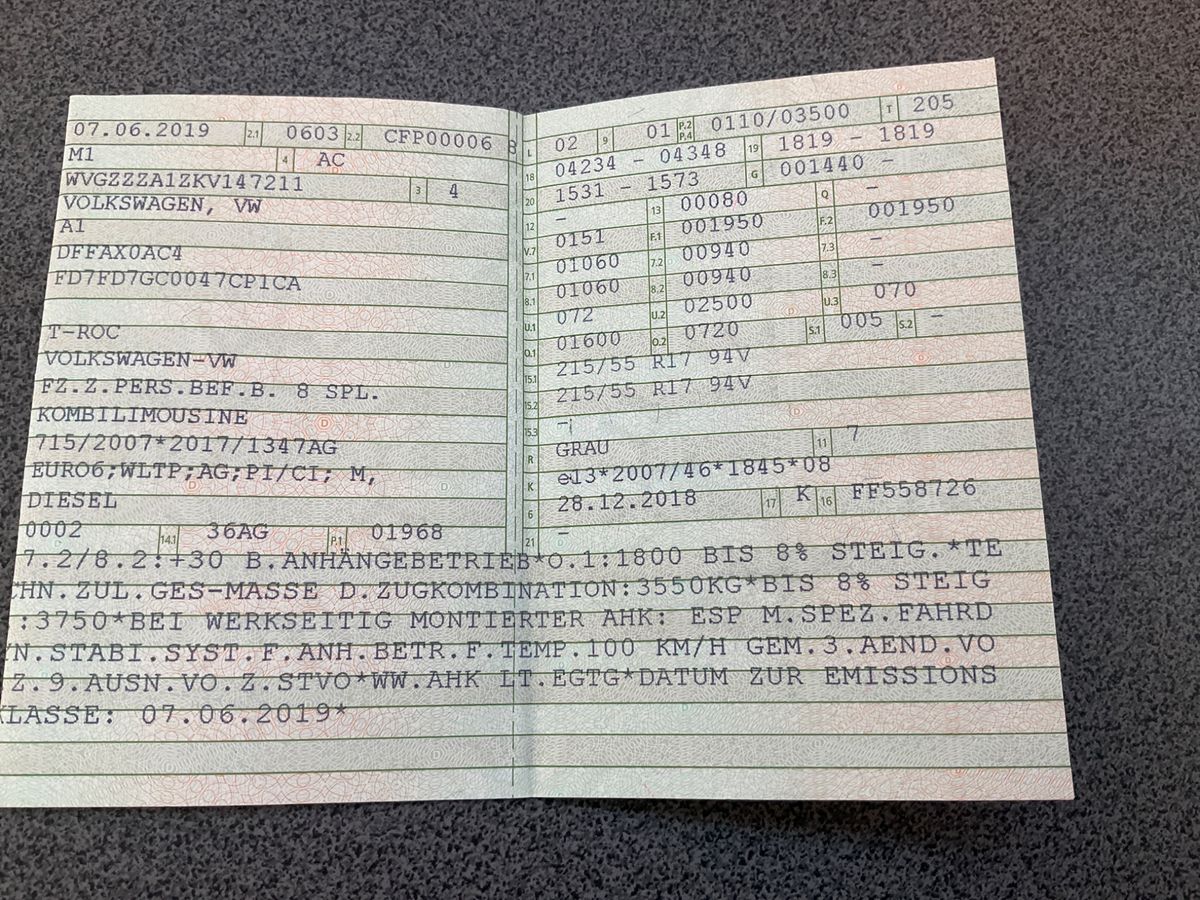 07.06.2019 2.1 0603 2.2 CFP00006 8
M1 4 AC
WVGZZZA1ZKV147211 3 4
VOLKSWAGEN, VW
A1
DFFAX0AC4
FD7FD7GC0047CP1CA
T-ROC
VOLKSWAGEN-VW
FZ.Z.PERS.BEF.B. 8 SPL.
KOMBILIMOUSINE
715/2007*2017/1347AG
EURO6;WLTP;AG;PI/CI; M,
DIESEL
0002 14.1 36AG P.1 01968
L 02 9 01 P.2 P.4 0110/03500 T 205
18 04234 - 04348 19 1819 - 1819
20 1531 - 1573 G 001440 -
12 - 13 00080 Q -
V.7 0151 F.1 001950 F.2 001950
7.1 01060 7.2 00940 7.3 -
8.1 01060 8.2 00940 8.3 -
U.1 072 U.2 02500 U.3 070
O.1 01600 O.2 0720 S.1 005 S.2 -
15.1 215/55 R17 94V
15.2 215/55 R17 94V
15.3 -
R GRAU 11 7
K e13*2007/46*1845*08
6 28.12.2018 17 K 16 FF558726
21 -
7.2/8.2:+30 B.ANHÄNGEBETRIEB*O.1:1800 BIS 8% STEIG.*TE
CHN.ZUL.GES-MASSE D.ZUGKOMBINATION:3550KG*BIS 8% STEIG
.:3750*BEI WERKSEITIG MONTIERTER AHK: ESP M.SPEZ.FAHRD
YN.STABI.SYST.F.ANH.BETR.F.TEMP.100 KM/H GEM.3.AEND.VO
Z.9.AUSN.VO.Z.STVO*WW.AHK LT.EGTG*DATUM ZUR EMISSIONS
KLASSE: 07.06.2019*